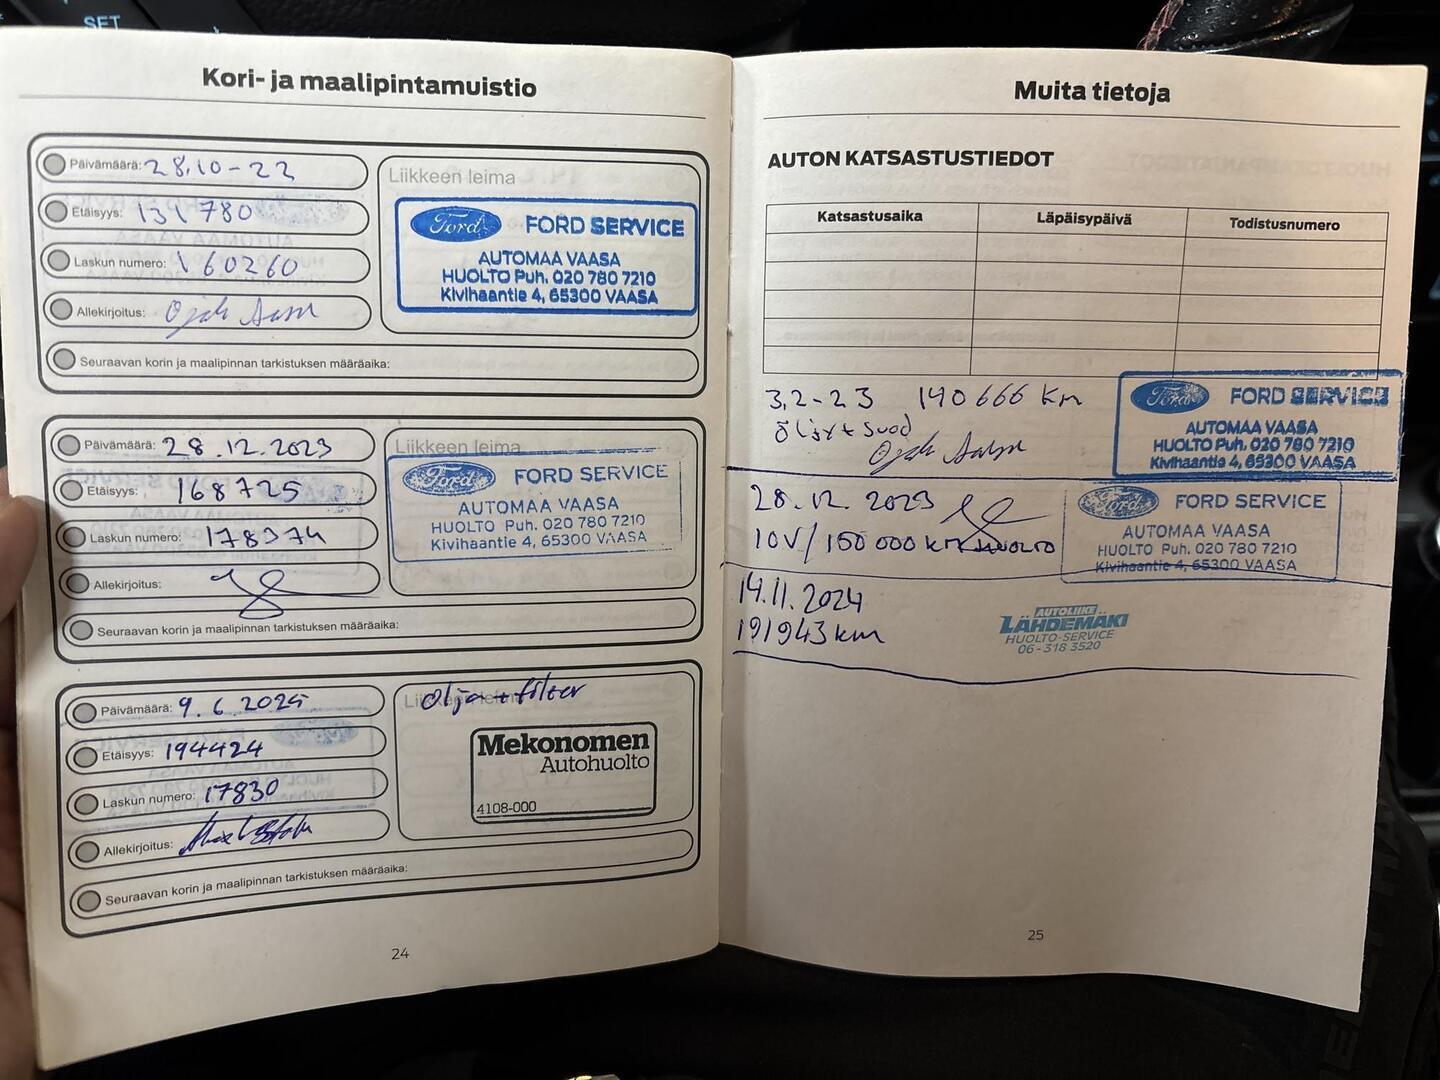 SET
Kori- ja maalipintamuistio
Päivämäärä: 28.10-22
Etäisyys: 131780
Laskun numero: 160260
Allekirjoitus:
Liikkeen leima
Ford FORD SERVICE
AUTOMAA VAASA
HUOLTO Puh. 020 780 7210
Kivihaantie 4, 65300 VAASA
Seuraavan korin ja maalipinnan tarkistuksen määräaika:
Päivämäärä: 28.12.2023
Etäisyys: 168725
Laskun numero: 178374
Allekirjoitus:
Liikkeen leima
Ford FORD SERVICE
AUTOMAA VAASA
HUOLTO Puh. 020 780 7210
Kivihaantie 4, 65300 VAASA
Seuraavan korin ja maalipinnan tarkistuksen määräaika:
Päivämäärä: 9.6.2025
Etäisyys: 194424
Laskun numero: 17830
Allekirjoitus:
Liikkeen leima
Olja + filter
Mekonomen
Autohuolto
4108-000
Seuraavan korin ja maalipinnan tarkistuksen määräaika:
24
Muita tietoja
AUTON KATSASTUSTIEDOT
Katsastusaika Läpäisypäivä Todistusnumero
3,2-23 140 666 km
Öljyt + Suod
Ford FORD SERVICE
AUTOMAA VAASA
HUOLTO Puh. 020 780 7210
Kivihaantie 4, 65300 VAASA
28.12.2023
10V/150 000 KM HUOLTO
Ford FORD SERVICE
AUTOMAA VAASA
HUOLTO Puh. 020 780 7210
Kivihaantie 4, 65300 VAASA
14.11.2024
191943 km
AUTOLIIKE
LÄHDEMÄKI
HUOLTO-SERVICE
06-318 3520
25